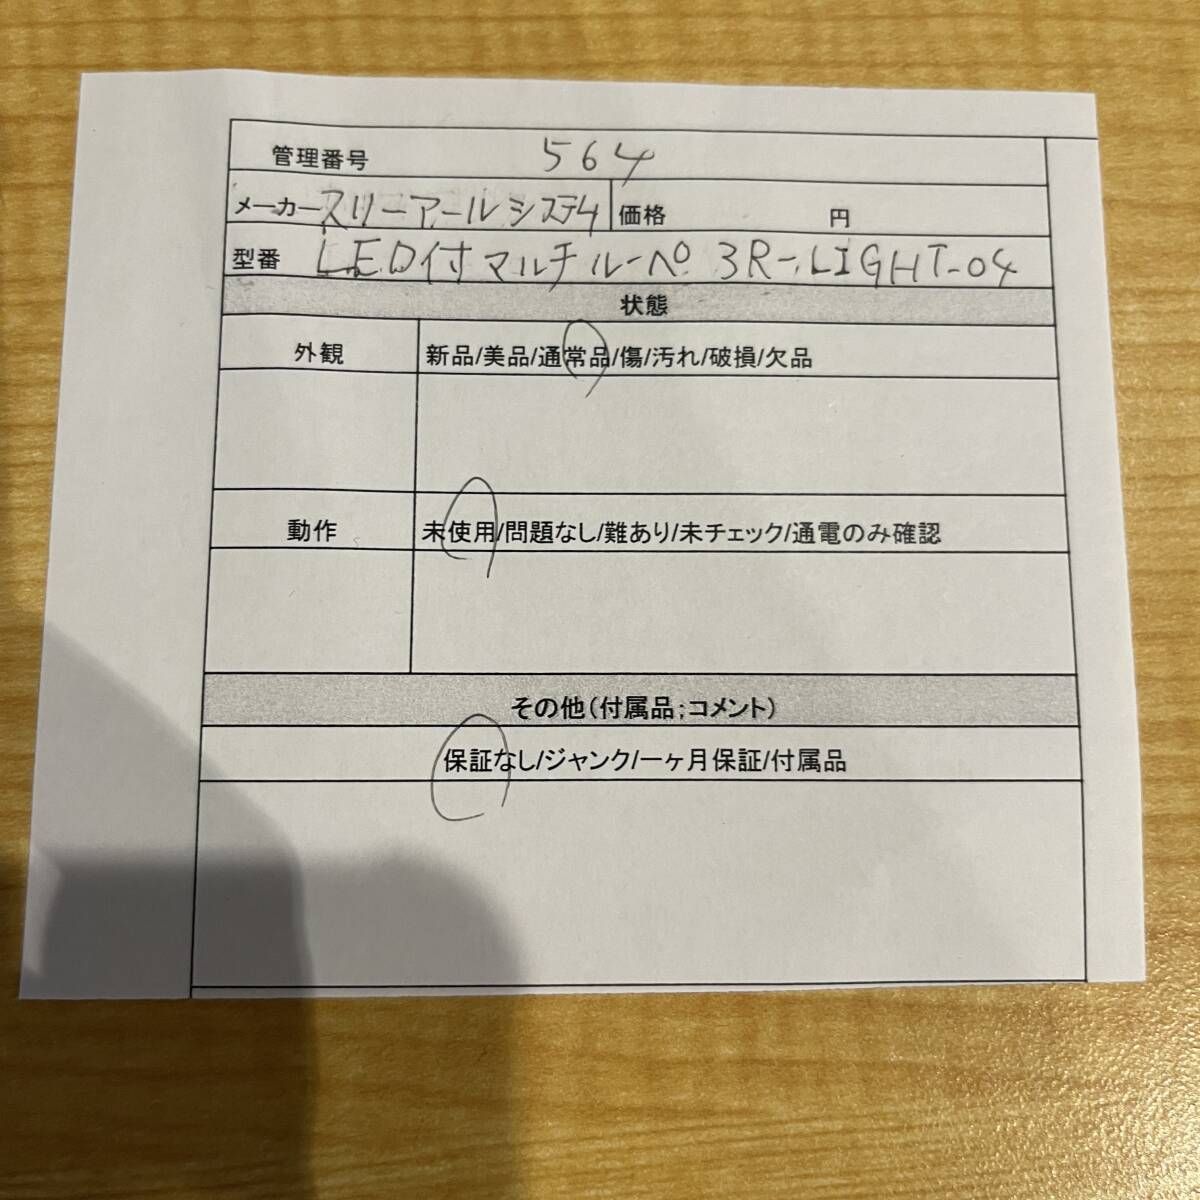 管理番号 564
メーカー スリーアールシステム 価格 円
型番 LED付マルチルーペ 3R-LIGHT-04
状態
外観 新品/美品/通常品/傷/汚れ/破損/欠品
動作 未使用/問題なし/難あり/未チェック/通電のみ確認
その他(付属品;コメント)
保証なし/ジャンク/一ヶ月保証/付属品